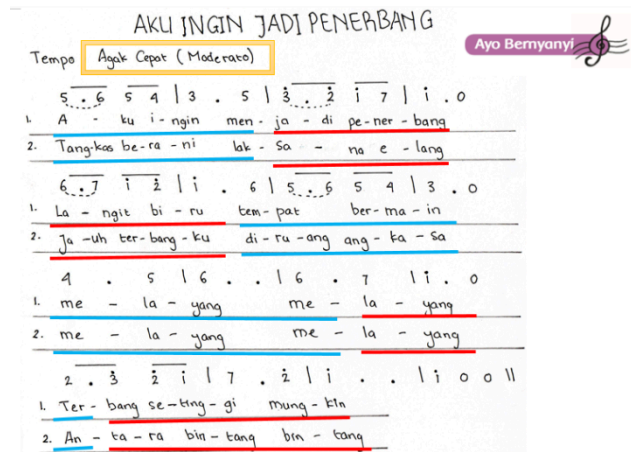 AKU INGIN JADI PENERBANG
Ayo Bernyanyi
Tempo Agak Cepat (Moderato)
5 . 6 5 4 | 3 . 5 | 3̇ . 2̇ i̇ 7 | i̇ . 0
1. A - ku i - ngin men - ja - di pe - ner - bang
2. Tang-kas be - ra - ni lak - sa - na e - lang
6 . 7 i̇ 2̇ | i̇ . 6 | 5 . 6 5 4 | 3 . 0
1. La - ngit bi - ru tem - pat ber - ma - in
2. Ja - uh ter - bang - ku di - ru - ang ang - ka - sa
4 . 5 | 6 . . | 6 . 7 | i̇ . 0
1. me - la - yang me - la - yang
2. me - la - yang me - la - yang
2 . 3̇ 2̇ i̇ | 7 . 2̇ | i̇ . . | i̇ 0 0 ||
1. Ter - bang se - ting - gi mung - kin
2. An - ta - ra bin - tang bin - tang